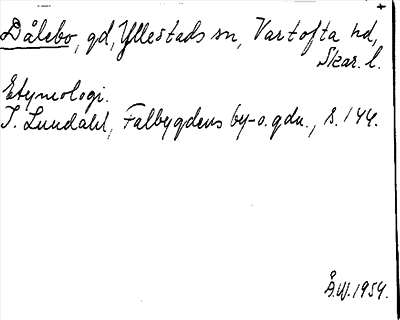 +
Dålebo, gd, Yllestads sn, Vartofta hd,
Skar. l.
Etymologi.
I. Lundahl, Falbygdens by- o. gdn., s. 144.
Å.W. 1954.